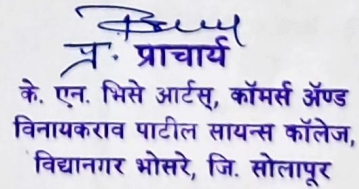 प्र. प्राचार्य
के. एन. भिसे आर्टस्, कॉमर्स ॲण्ड
विनायकराव पाटील सायन्स कॉलेज,
विद्यानगर भोसरे, जि. सोलापूर